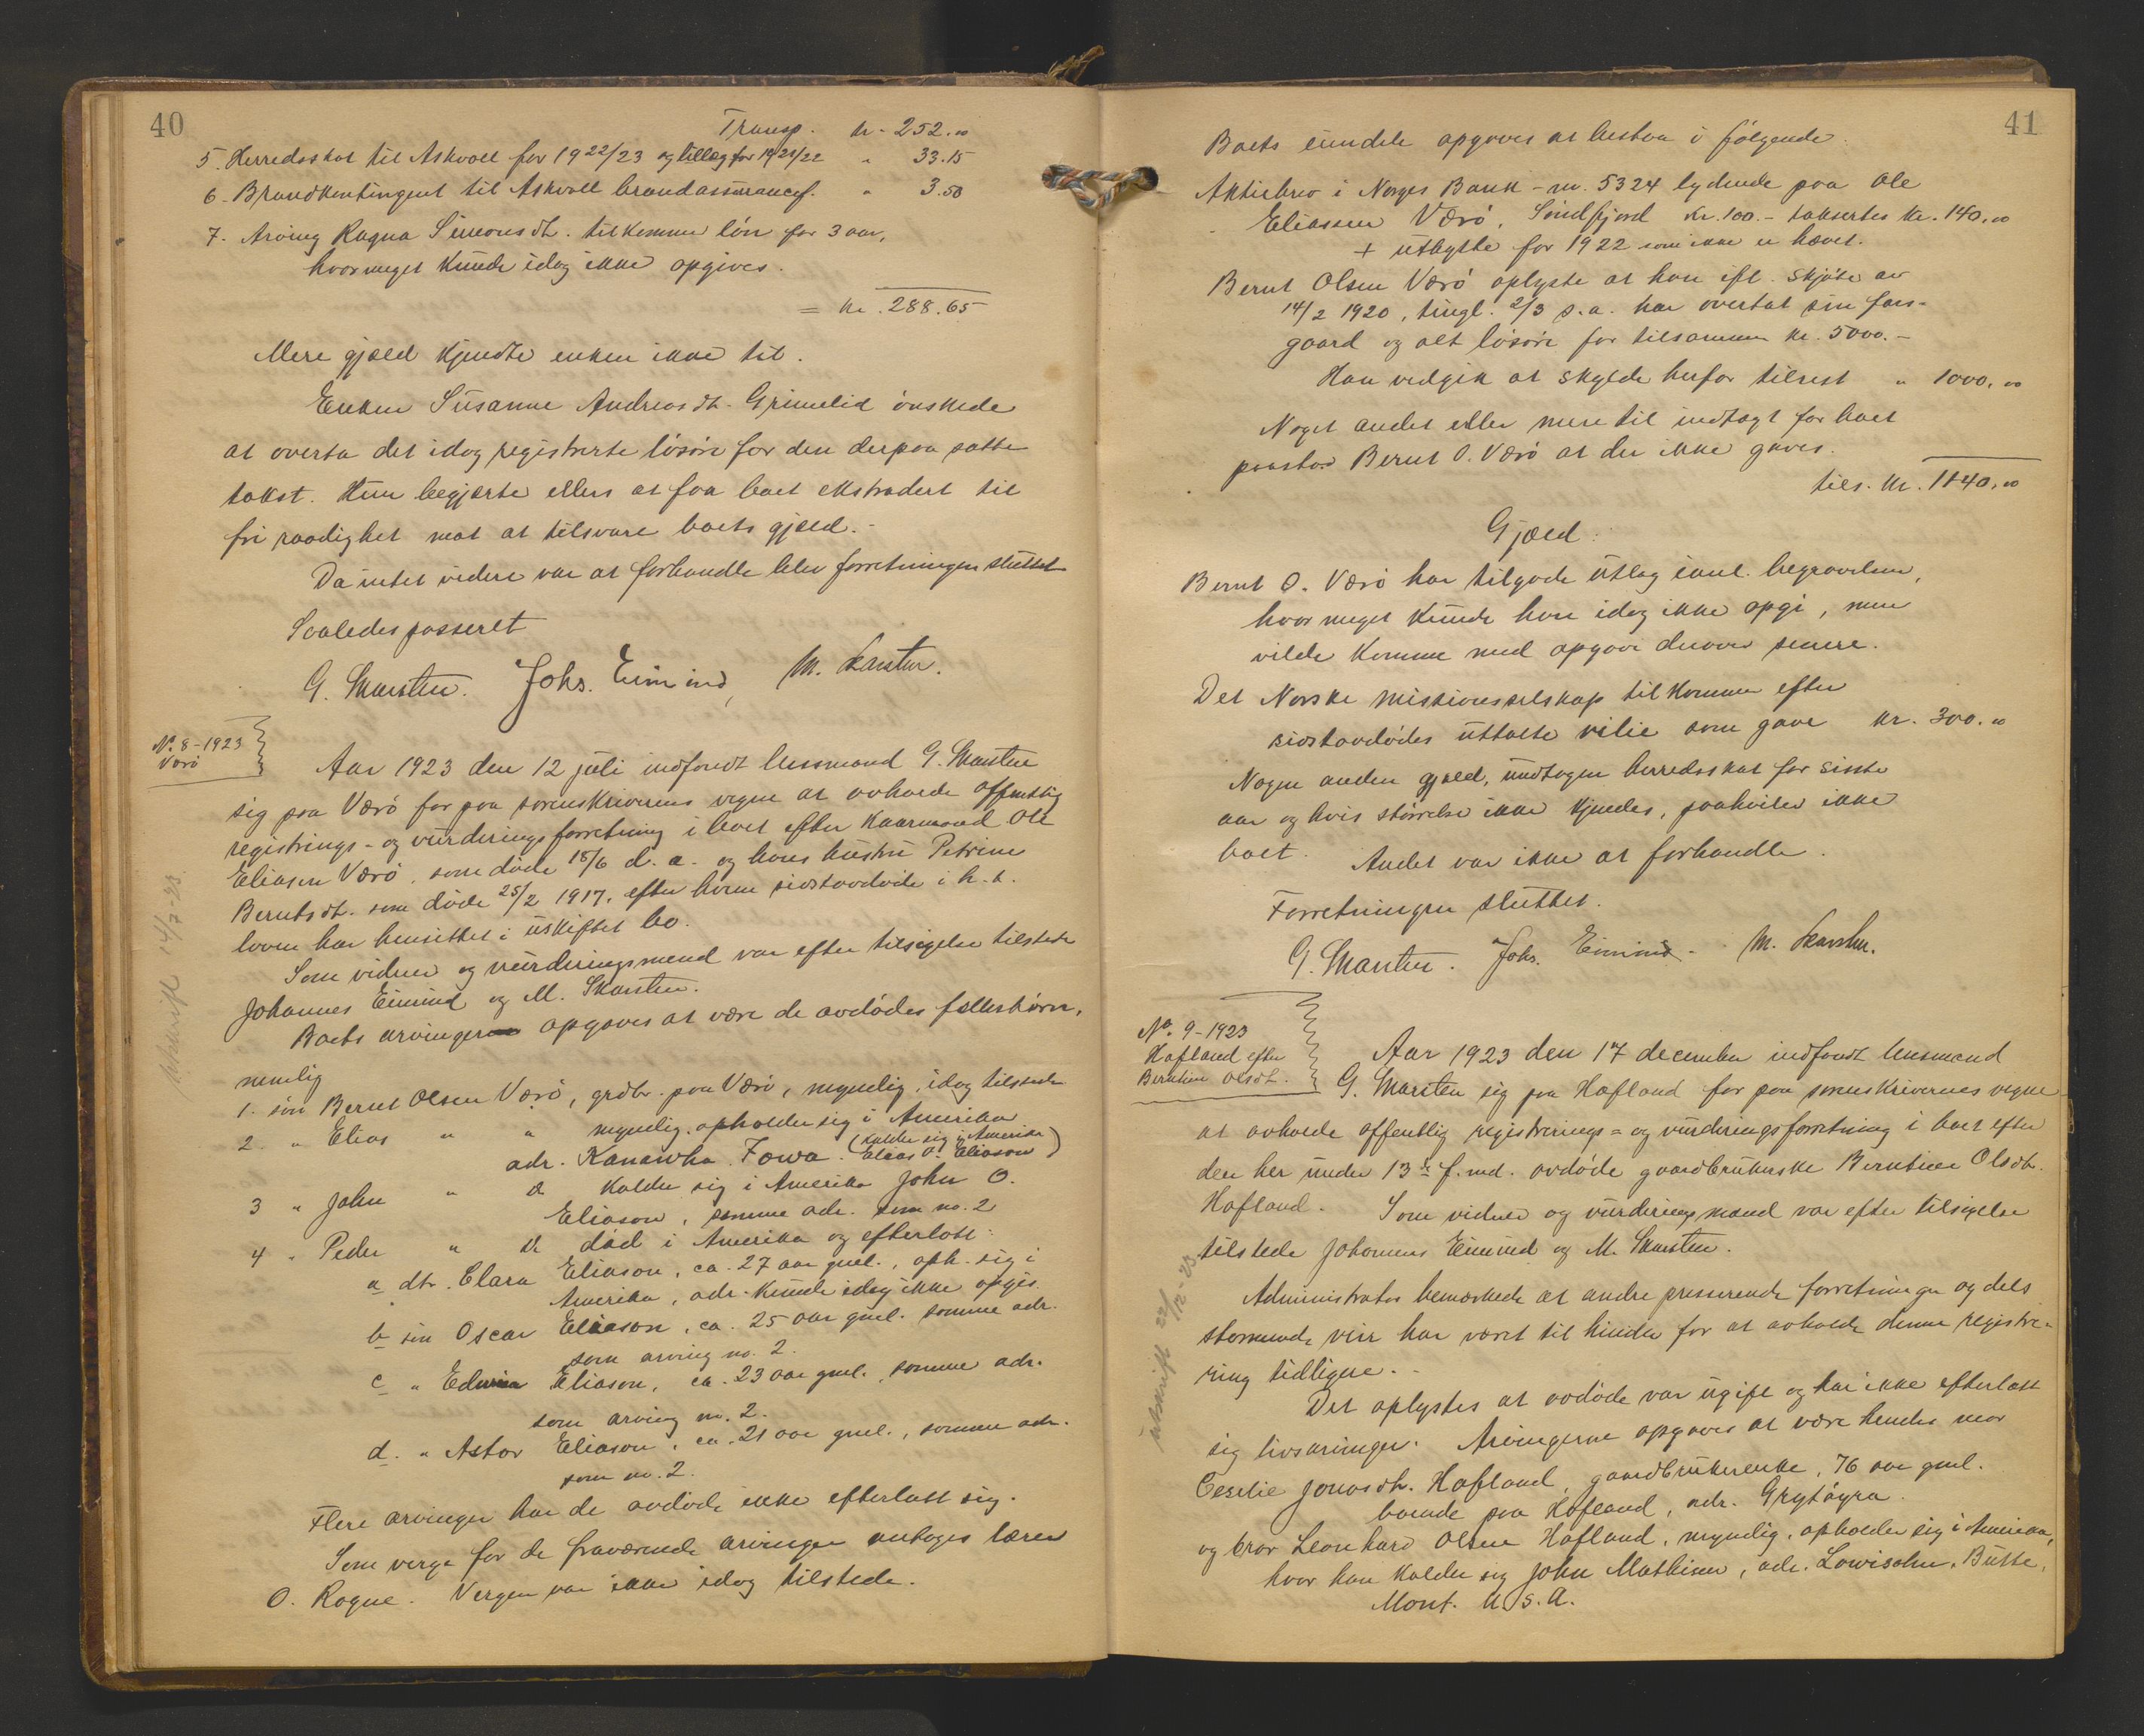 40
Transp. kr. 252.00
5. Herredsskat til Askvoll for 1922/23 og tillæg for 1921/22 " 33.15
6. Brandkontingent til Askvoll brandassurancef. " 3.50
7. Arving Ragna Simonsdt. tilkommer lön for 3 aar,
hvormeget kunde idag ikke opgives.
= kr. 288.65
Mere gjæld kjendte enken ikke til.
Enken Susanne Andreasdt. Grimelid önskede
at overta det idag registrerte lösöre for den derpaa satte
takst. Hun begjærte ellers at faa boet ekstradert til
fri raadighet mot at tilsvare boets gjæld.-
Da intet videre var at forhandle blev forretningen sluttet
Saaledes passeret
G. Skarsten. Johs. Eimind, M. Skarsten.
No. 8-1923
Værö
Aar 1923 den 12 juli indfandt lensmand G. Skarsten
sig paa Værö for paa sorenskriverens vegne at avholde offentlig
registrings- og vurderingsforretning i boet efter kaarmand Ole
Eliasen Værö, som döde 18/6 d.a. og hans hustru Petrine
Berntsdt. som döde 25/2 1917, efter hvem sidstavdöde i h.t.
loven har hensittet i uskiftet bo.
Som vidner og vurderingsmænd var efter tilsigelse tilstede
Johannes Eimind og M. Skarsten.
Boets arvinger opgaves at være de avdödes fellesbörn,
nemlig
1. sön Bernt Olsen Værö, grdbr. paa Værö, myndig, idag tilstede
2. " Elias " " myndig, opholder sig i Amerika
adr. Kanawha, Iowa. (kalder sig i Amerika Elias O. Eliason)
3 " John " do kalder sig i Amerika John O.
Eliason, samme adr. som no. 2
4 " Peder " do död i Amerika og efterlatt:
a dtr. Clara Eliason, ca. 27 aar gml., oph. sig i
Amerika, adr. kunde idag ikke opgis.
b sön Oscar Eliason, ca. 25 aar gml. samme adr.
som arving no. 2.
c " Edwin Eliason, ca. 23 aar gml., samme adr.
som arving no. 2.
d. " Astor Eliason, ca. 21 aar gml., samme adr.
som no. 2.
Flere arvinger har de avdöde ikke efterlatt sig.
Som verge for de fraværende arvinger antages lærer
O. Rogne. Vergen var ikke idag tilstede.
utskrift 14/7-23
41
Boets eiendele opgaves at bestaa i fölgende:
Aktiebrev i Norges Bank - nr. 5324 lydende paa Ole
Eliassen Værö, Söndfjord kr. 100.- taksertes kr. 140,00
+ utbytte for 1922 som ikke er hævet.
Bernt Olsen Værö oplyste at han ifl. skjöte av
14/2 1920, tingl. 2/3 s.a. har overtat sin fars
gaard og alt lösöre for tilsammen kr. 5000.-
Han vedgik at skylde herfor tilrest " 1000,00
Noget andet eller mere til indtægt for boet
paastod Bernt O. Værö at der ikke gaves.
tils. kr. 1140,00
Gjæld:
Bernt O. Værö har tilgode utlæg ianl. begravelsen,
hvor meget kunde han idag ikke opgi, men
vilde komme med opgave derover senere.
Det Norske missionsselskap tilkommer efter
sidstavdödes uttalte vilie som gave kr. 300.00
Nogen anden gjæld, undtagen herredsskat for sisste
aar og hvis störrelse ikke kjendes, paahviler ikke
boet. Andet var ikke at forhandle.
Forretningen sluttet.
G. Skarsten. Johs. Eimind. M. Skarsten.
No. 9-1923
Hafland efter
Berntine Olsdt.
Aar 1923 den 17 december indfandt lensmand
G. Skarsten sig paa Hafland for paa sorenskriverens vegne
at avholde offentlig registrerings- og vurderingsforretning i boet efter
den her under 13de f.md. avdöde gaardbrukerske Berntine Olsdtr.
Hafland. Som vidner og vurderingsmænd var efter tilsigelse
tilstede Johannes Eimind og M. Skarsten.
Administrator bemerkede at andre presserende forretninger og dels
stormende veir har været til hinder for at avholde denne registre-
ring tidligere.-
Det oplystes at avdöde var ugift og har ikke efterlatt
sig livsarvinger. Arvingerne opgaves at være hendes mor
Cesilie Jonasdt. Hafland, gaardbrukerenke, 76 aar gml.
boende paa Hafland, adr. Grytöyra
og bror Leonhard Olsen Hafland, myndig, opholder sig i Amerika,
hvor han kalder sig John Mathisen, adr. Lowisohn, Butte,
Mont. U.S.A.
utskrift 22/12-23